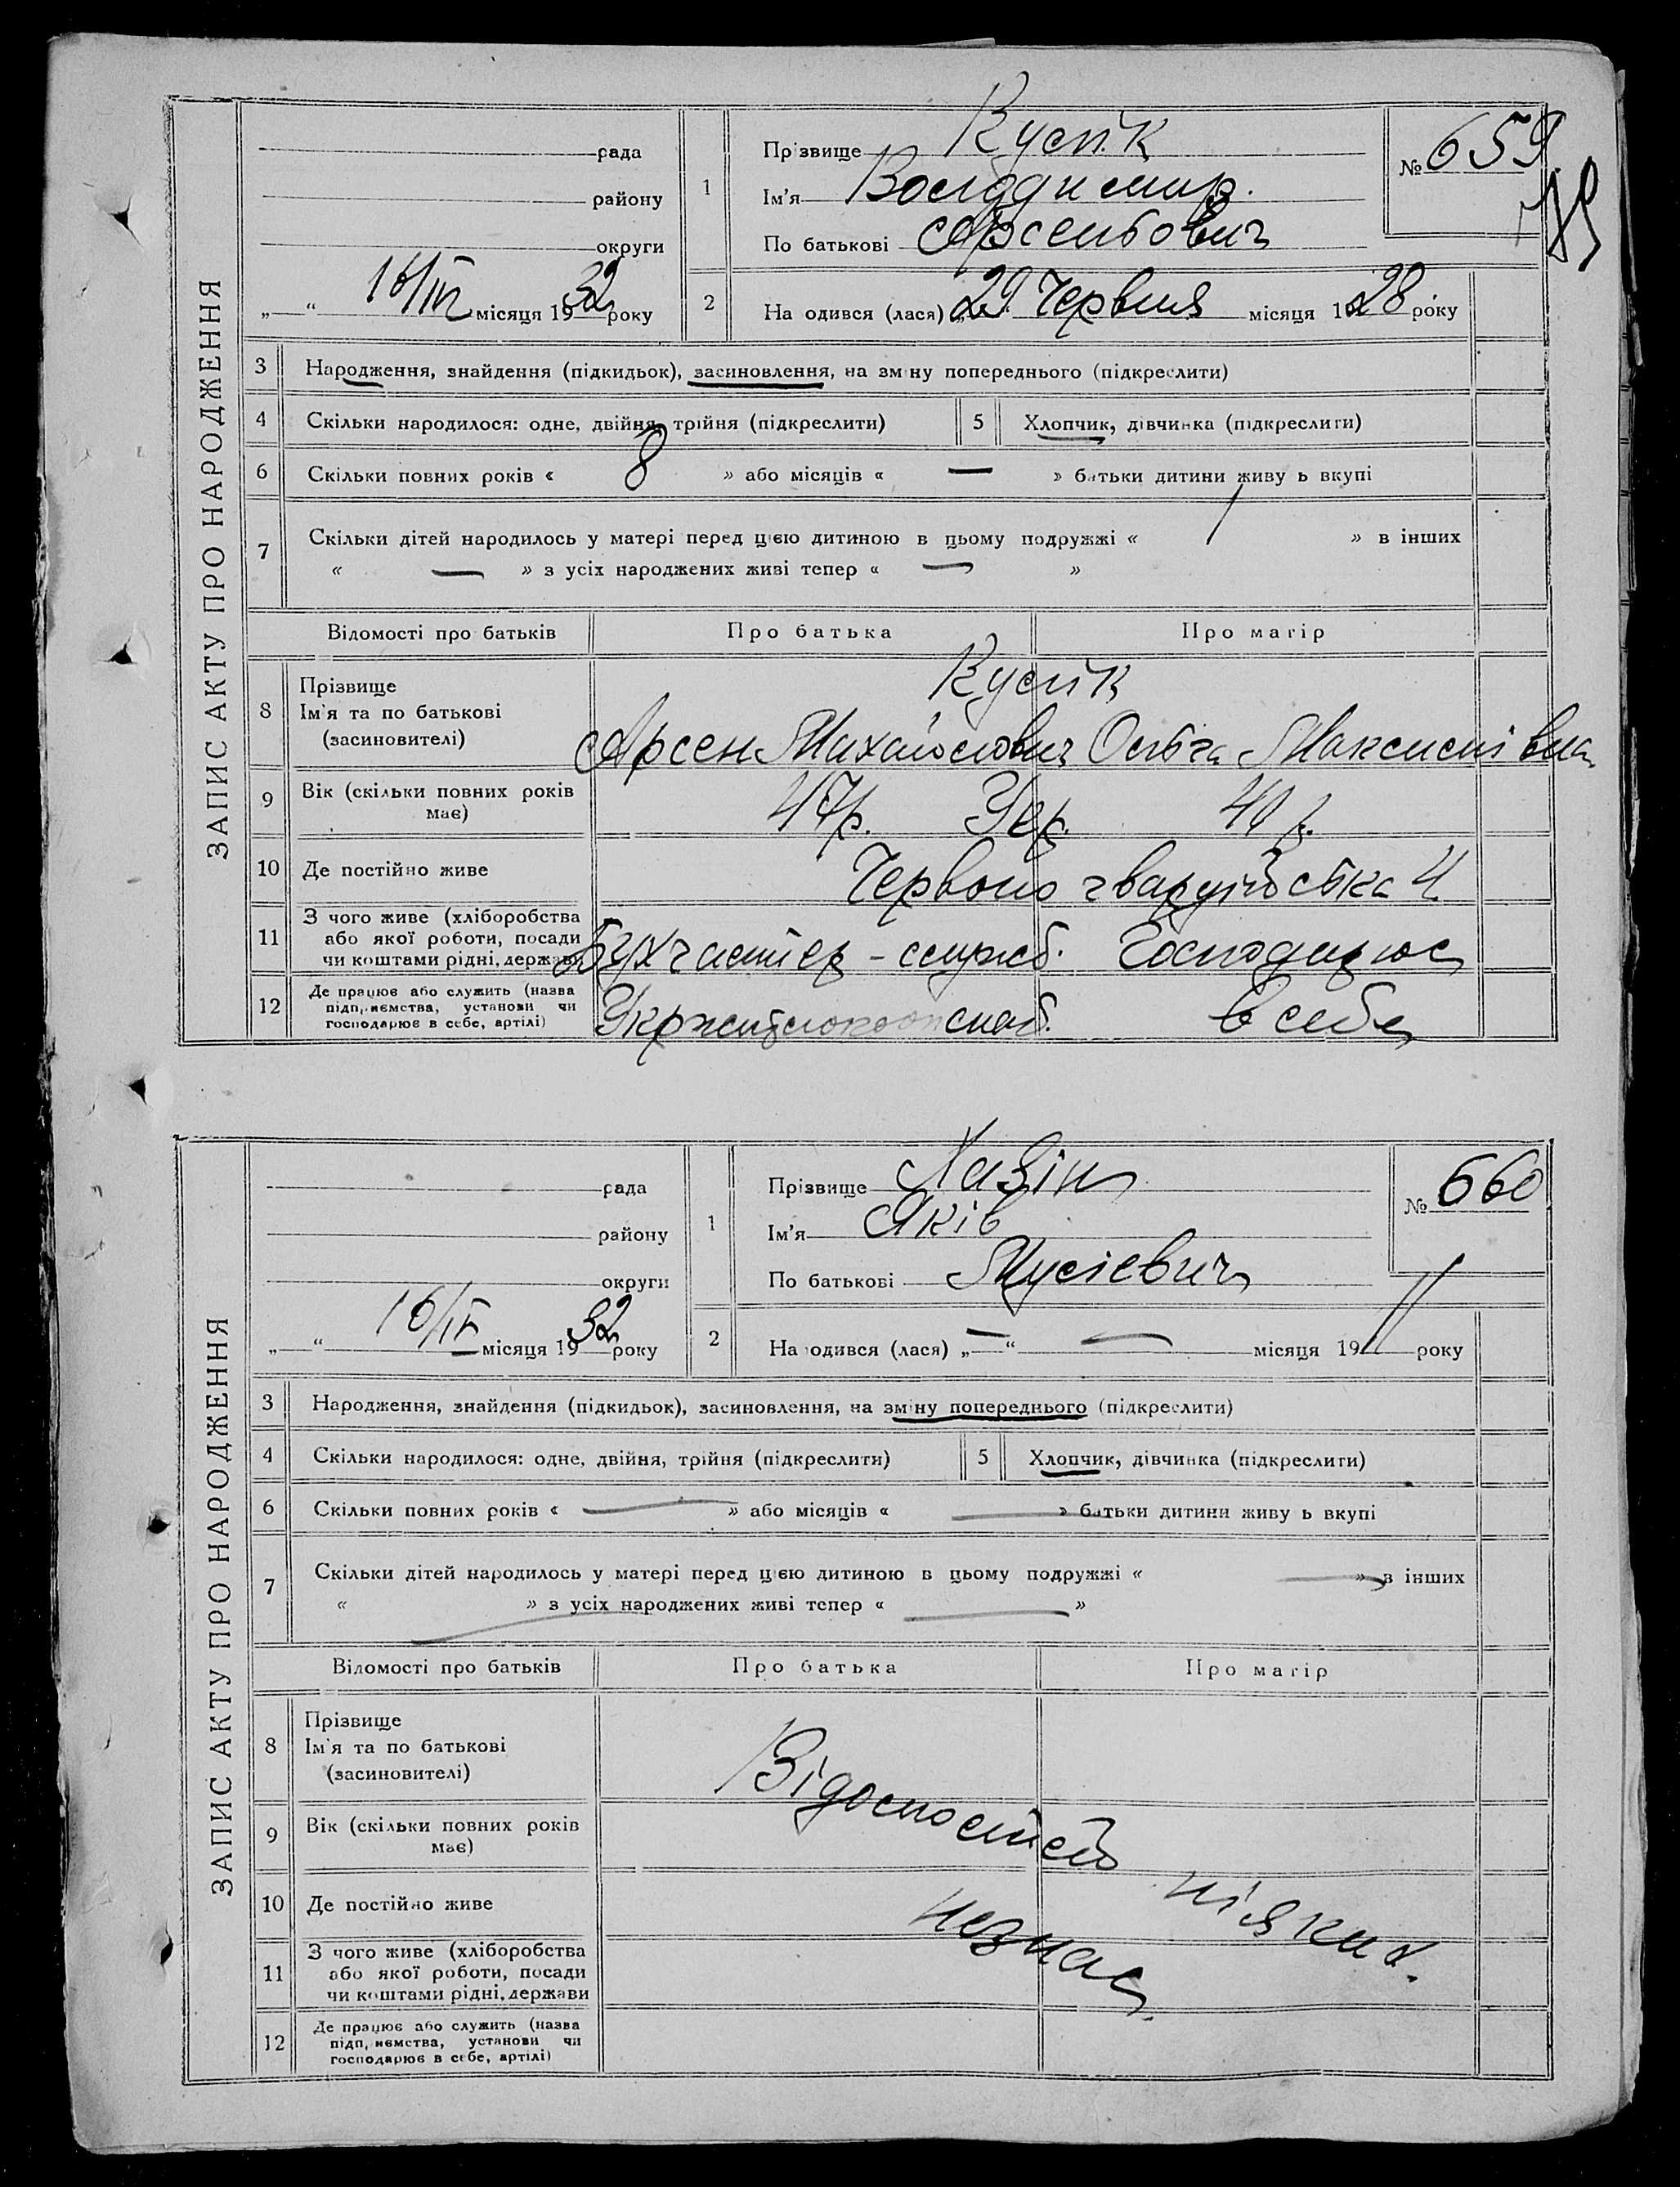 ЗАПИС АКТУ ПРО НАРОДЖЕННЯ
рада
району
округи
„ “ 16/IV місяця 1932 року
1
Прізвище Кусік
Ім'я Володимир.
По батькові Арсентович
№ 659
2 На одився (лася) „29 Червня місяця 1928 року
3 Народження, знайдення (підкидьок), засиновлення, на зміну попереднього (підкреслити)
4 Скільки народилося: одне, двійня, трійня (підкреслити) 5 Хлопчик, дівчинка (підкреслити)
6 Скільки повних років « 8 » або місяців « — » батьки дитини живу ь вкупі
7 Скільки дітей народилось у матері перед цією дитиною в цьому подружжі « 1 » в інших
« — » з усіх народжених живі тепер « — »
Відомості про батьків Про батька Про матір
8 Прізвище
Ім'я та по батькові
(засиновителі)
Кусік
Арсен Михайлович Ольга Максимівна
9 Вік (скільки повних років
має)
47р. Укр. 40 р.
10 Де постійно живе Червоно гвардійська 4
11 З чого живе (хліборобства
або якої роботи, посади
чи коштами рідні, держави
Бухгалтер - служб. Господарює
12 Де працює або служить (назва
підприємства, установи чи
господарює в себе, артілі)
в себе
ЗАПИС АКТУ ПРО НАРОДЖЕННЯ
рада
району
округи
„ “ 16/IV місяця 1932 року
1
Прізвище Хазін
Ім'я Яків
По батькові Мусієвич
№ 660
2 На одився (лася) „—“ — місяця 1911 року
3 Народження, знайдення (підкидьок), засиновлення, на зміну попереднього (підкреслити)
4 Скільки народилося: одне, двійня, трійня (підкреслити) 5 Хлопчик, дівчинка (підкреслити)
6 Скільки повних років « — » або місяців « — » батьки дитини живу ь вкупі
7 Скільки дітей народилось у матері перед цією дитиною в цьому подружжі « — » в інших
« — » з усіх народжених живі тепер « — »
Відомості про батьків Про батька Про матір
8 Прізвище
Ім'я та по батькові
(засиновителі)
9 Вік (скільки повних років
має)
10 Де постійно живе
11 З чого живе (хліборобства
або якої роботи, посади
чи коштами рідні, держави
12 Де працює або служить (назва
підприємства, установи чи
господарює в себе, артілі)
Відомостей ніяких.
незнає